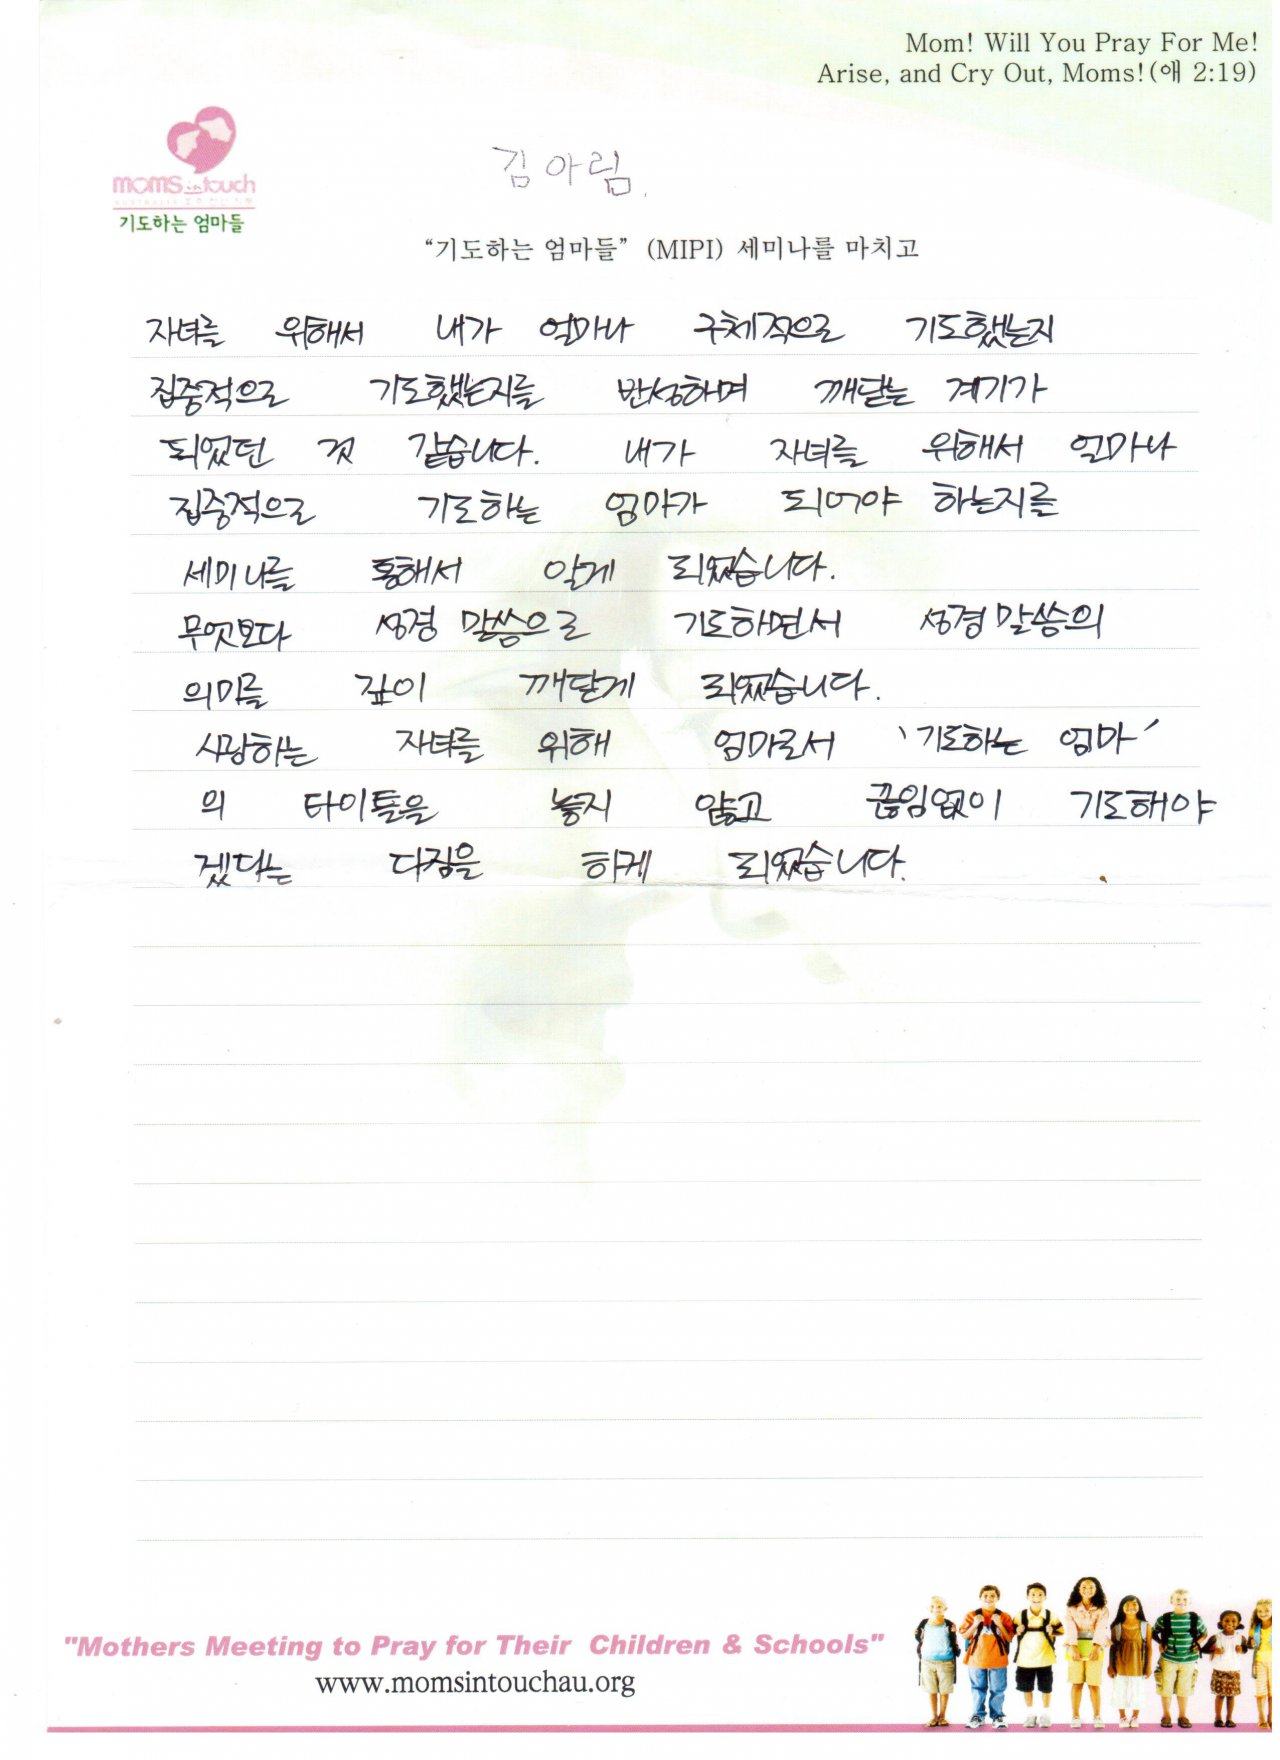 Mom! Will You Pray For Me!
Arise, and Cry Out, Moms!(애 2:19)
moms in touch
기도하는 엄마들
김아림.
“기도하는 엄마들” (MIPI) 세미나를 마치고
자녀를 위해서 내가 얼마나 구체적으로 기도했는지
집중적으로 기도했는지를 반성하며 깨닫는 계기가
되었던 것 같습니다. 내가 자녀를 위해서 얼마나
집중적으로 기도하는 엄마가 되어야 하는지를
세미나를 통해서 알게 되었습니다.
무엇보다 성경 말씀으로 기도하면서 성경말씀의
의미를 깊이 깨닫게 되었습니다.
사랑하는 자녀를 위해 엄마로서 '기도하는 엄마'
의 타이틀을 놓지 않고 끊임없이 기도해야
겠다는 다짐을 하게 되었습니다.
"Mothers Meeting to Pray for Their Children & Schools"
www.momsintouchau.org